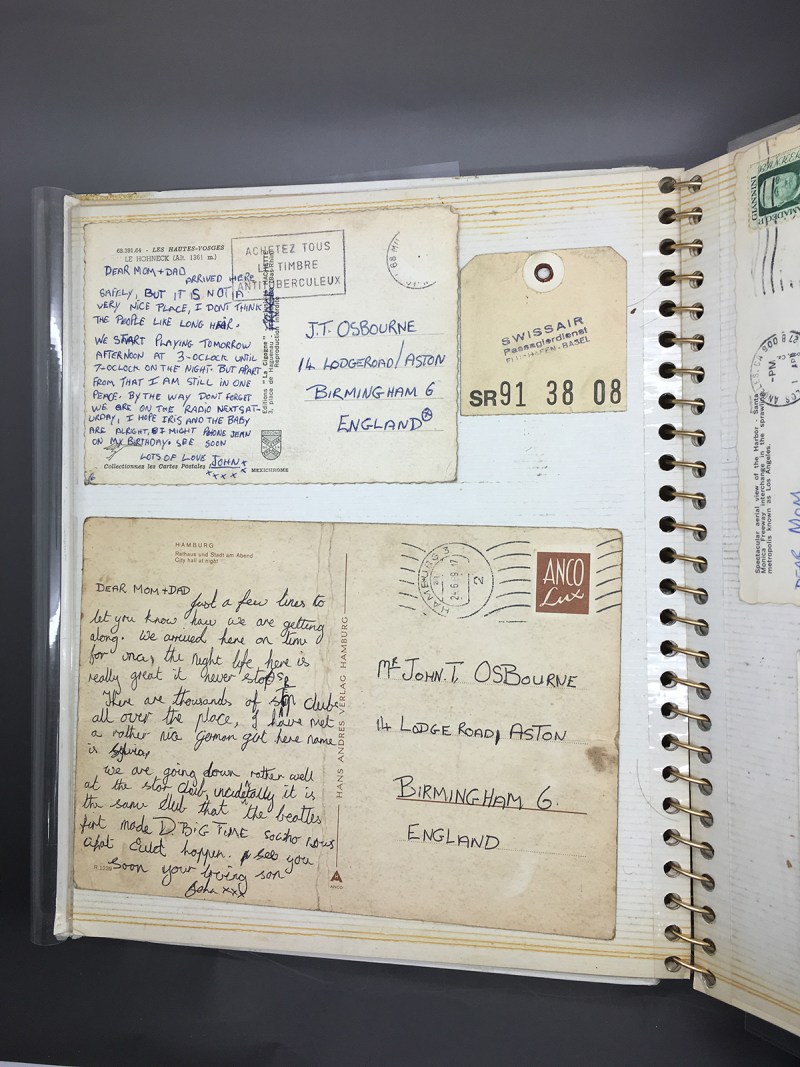 68.391.04 - LES HAUTES-VOSGES
LE HOHNECK (Alt. 1361 m.)
ACHETEZ TOUS
TIMBRE
ANTITUBERCULEUX
DEAR MOM + DAD
ARRIVED HERE
SAFELY, BUT IT IS NOT A
VERY NICE PLACE, I DONT THINK
THE PEOPLE LIKE LONG HAIR.
WE START PLAYING TOMORROW
AFTERNOON AT 3-OCLOCK UNTIL
7-OCLOCK ON THE NIGHT. BUT APART
FROM THAT I AM STILL IN ONE
PEACE. BY THE WAY DONT FORGET
WE ARE ON THE RADIO NEXT SAT-
URDAY, I HOPE IRIS AND THE BABY
ARE ALRIGHT, I MIGHT PHONE JEAN
ON MY BIRTHDAY. SEE SOON
LOTS OF LOVE JOHN x
x x x
Collectionnez les Cartes Postales
MEXICHROME
Editions "La Cigogne"
3, place de Haguenau -
Reproduction interdite
HACHETTE
J.T. OSBOURNE
14 LODGEROAD/ASTON
BIRMINGHAM 6
ENGLAND
SWISSAIR
Passagierdienst
-BASEL
SR91 38 08
HAMBURG
Rathaus und Stadt am Abend
City hall at night
DEAR MOM + DAD
Just a few lines to
let you know how we are getting
along. We arrived here on time
for once, the night life here is
really great it never stops
There are thousands of clubs
all over the place, I have met
a rather nice German girl here name
is Sylvia,
We are going down rather well
at the star club, incidetally it is
the same club that the beatles
first made D BIG TIME so who nows
what Culd happen. See you
Soon your loving son
John xxx
N 2299
HANS ANDRES VERLAG HAMBURG
ANCO
HAMBURG
2
ANCO
Lux
MR JOHN. T. OSBOURNE
14 LODGE ROAD, ASTON
BIRMINGHAM 6.
ENGLAND
AMADEO P.
GIANNINI
PM
Spectacular aerial view of the Harbor - Santa
Monica Freeway interchange in the sprawling
metropolis known as Los Angeles.
DEAR MOM